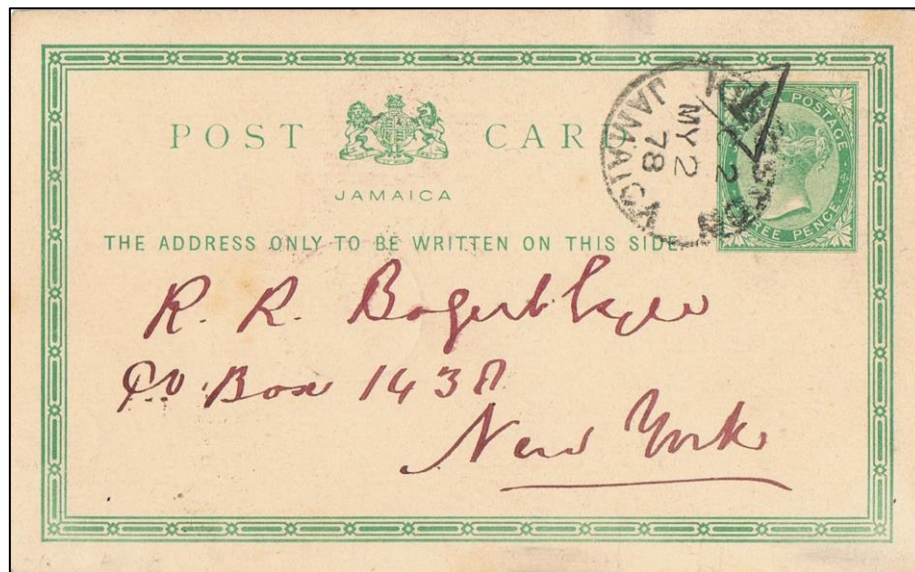 POST CARD
JAMAICA
THE ADDRESS ONLY TO BE WRITTEN ON THIS SIDE.
KINGSTON
MY 2
78
JAMAICA
POSTAGE
THREE PENCE
R. R. Bogert
P.O. Box 1438
New York